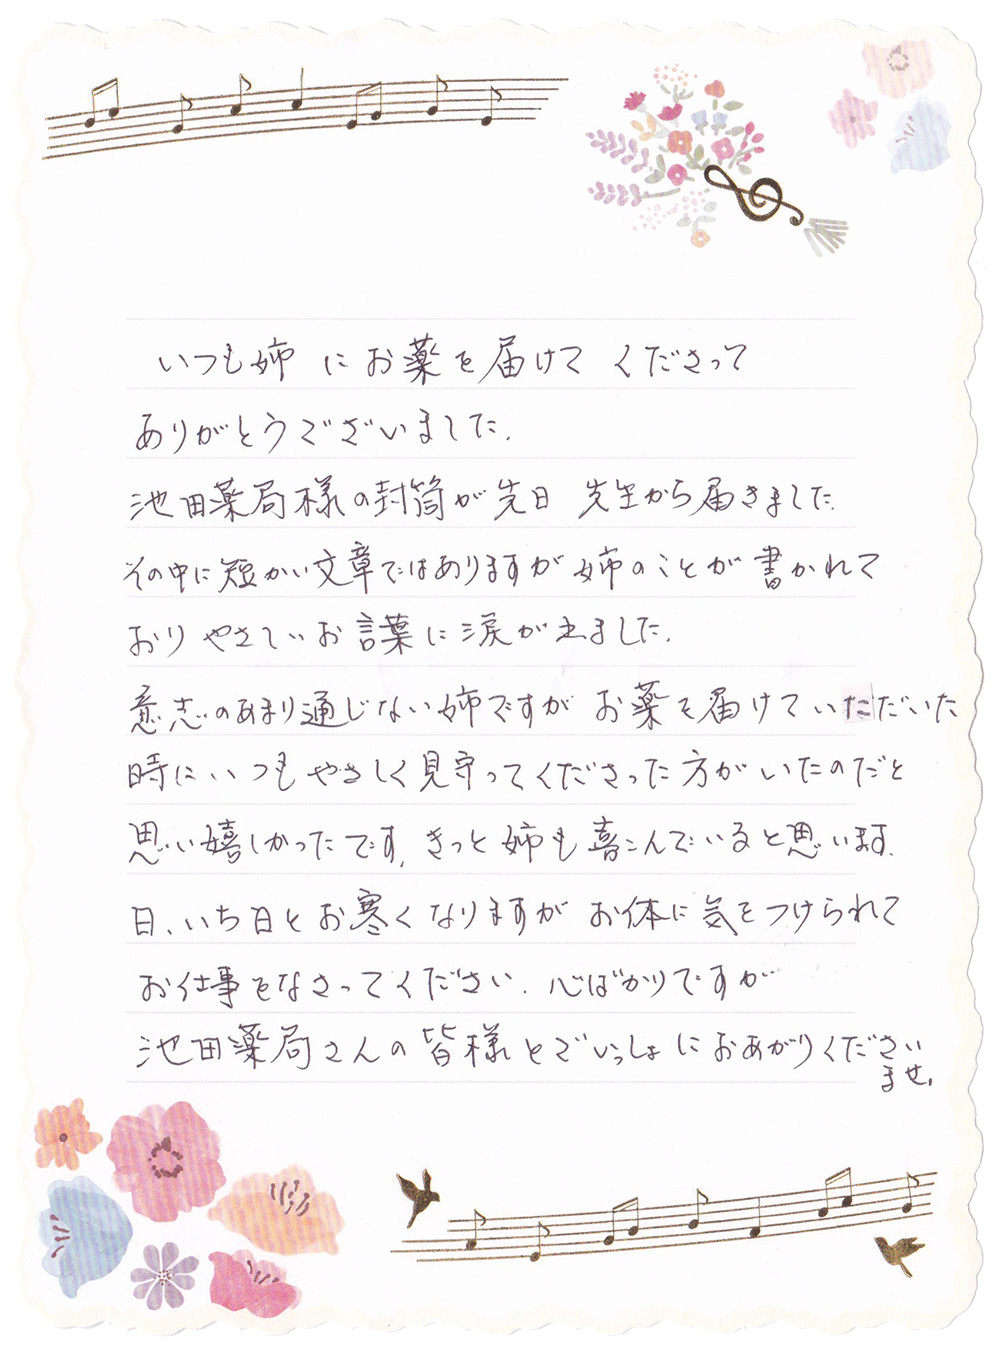 いつも姉 にお薬を届けて くださって
ありがとうございました.
池田薬局様の封筒が先日 先生から届きました.
その中に短かい文章ではありますが姉のことが書かれて
おり やさしいお言葉に涙が出ました.
意志のあまり通じない姉ですが お薬を届けていただいた
時にいつもやさしく見守ってくださった方がいたのだと
思い嬉しかったです, きっと姉も喜こんでいると思います.
日、いち日とお寒くなりますが お体に気をつけられて
お仕事をなさってください. 心ばかりですが
池田薬局さんの皆様とごいっしょにおあがりください
ませ.